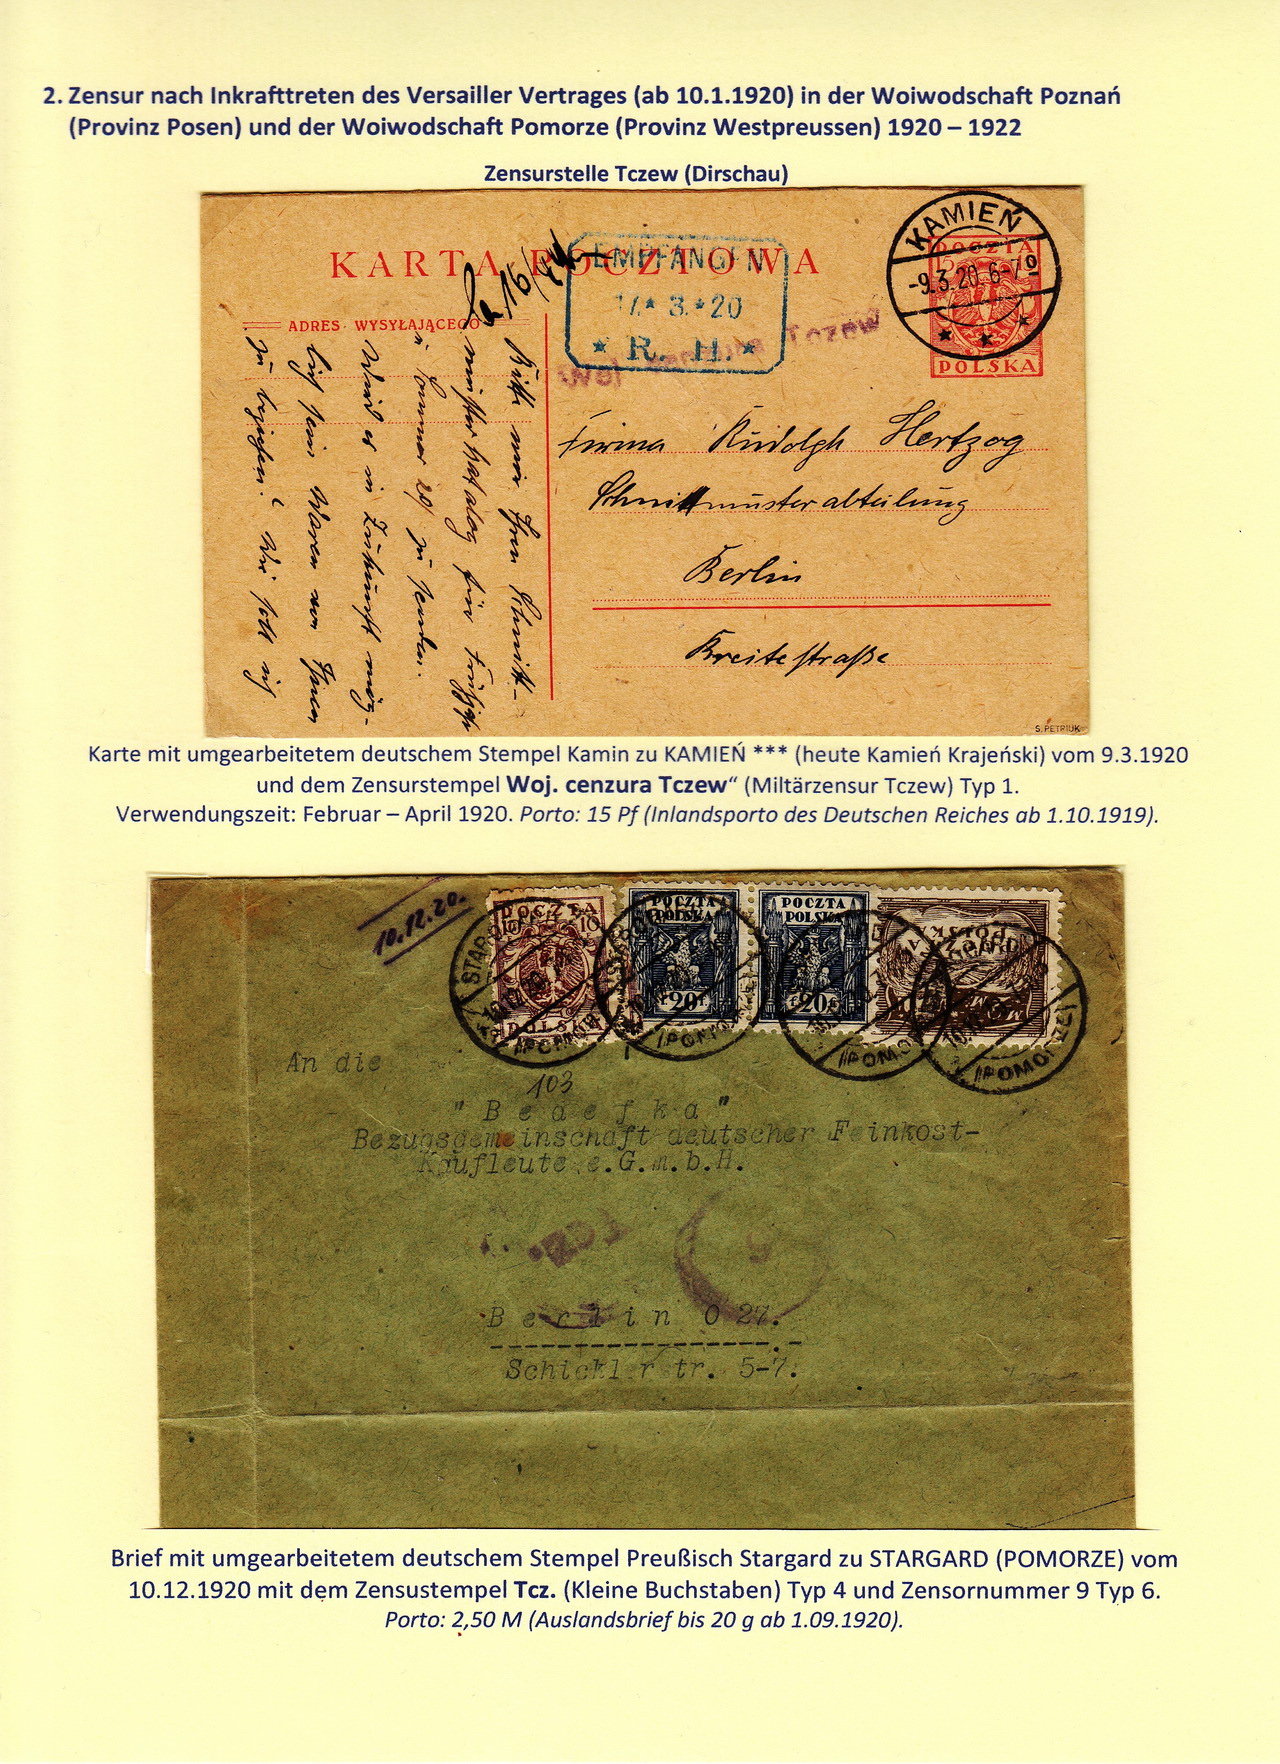 2. Zensur nach Inkrafttreten des Versailler Vertrages (ab 10.1.1920) in der Woiwodschaft Poznań
(Provinz Posen) und der Woiwodschaft Pomorze (Provinz Westpreussen) 1920 – 1922
Zensurstelle Tczew (Dirschau)
KARTA POCZTOWA
ADRES WYSYŁAJĄCEGO
EMPFANGEN
17.* 3.*20
* R. H *
Woj. cenzura Tczew
KAMIEŃ
-9.3.20.6-7
POCZTA
15
POLSKA
Bitte mir Ihren Schnitt-
musterkatalog für Frühjahr
u. Sommer 20 zu senden.
Wird es in Zukunft mög-
lich sein Waren von Ihnen
zu beziehen?
Firma Rudolph Hertzog
Schnittmusterabteilung
Berlin
Breitestraße
S. PETRIUK
Karte mit umgearbeitetem deutschem Stempel Kamin zu KAMIEŃ *** (heute Kamień Krajeński) vom 9.3.1920
und dem Zensurstempel Woj. cenzura Tczew“ (Miltärzensur Tczew) Typ 1.
Verwendungszeit: Februar – April 1920. Porto: 15 Pf (Inlandsporto des Deutschen Reiches ab 1.10.1919).
10.12.20.
POCZTA
10 10
POLSKA
POCZTA
POLSKA
20 f
POCZTA
POLSKA
f 20 f
POCZTA
POLSKA
(POMORZE)
An die
103
"Bedefka"
Bezugsgemeinschaft deutscher Feinkost-
Kaufleute e.G.m.b.H.
Tcz.
Berlin O 27.
Schicklerstr. 5-7.
Brief mit umgearbeitetem deutschem Stempel Preußisch Stargard zu STARGARD (POMORZE) vom
10.12.1920 mit dem Zensustempel Tcz. (Kleine Buchstaben) Typ 4 und Zensornummer 9 Typ 6.
Porto: 2,50 M (Auslandsbrief bis 20 g ab 1.09.1920).